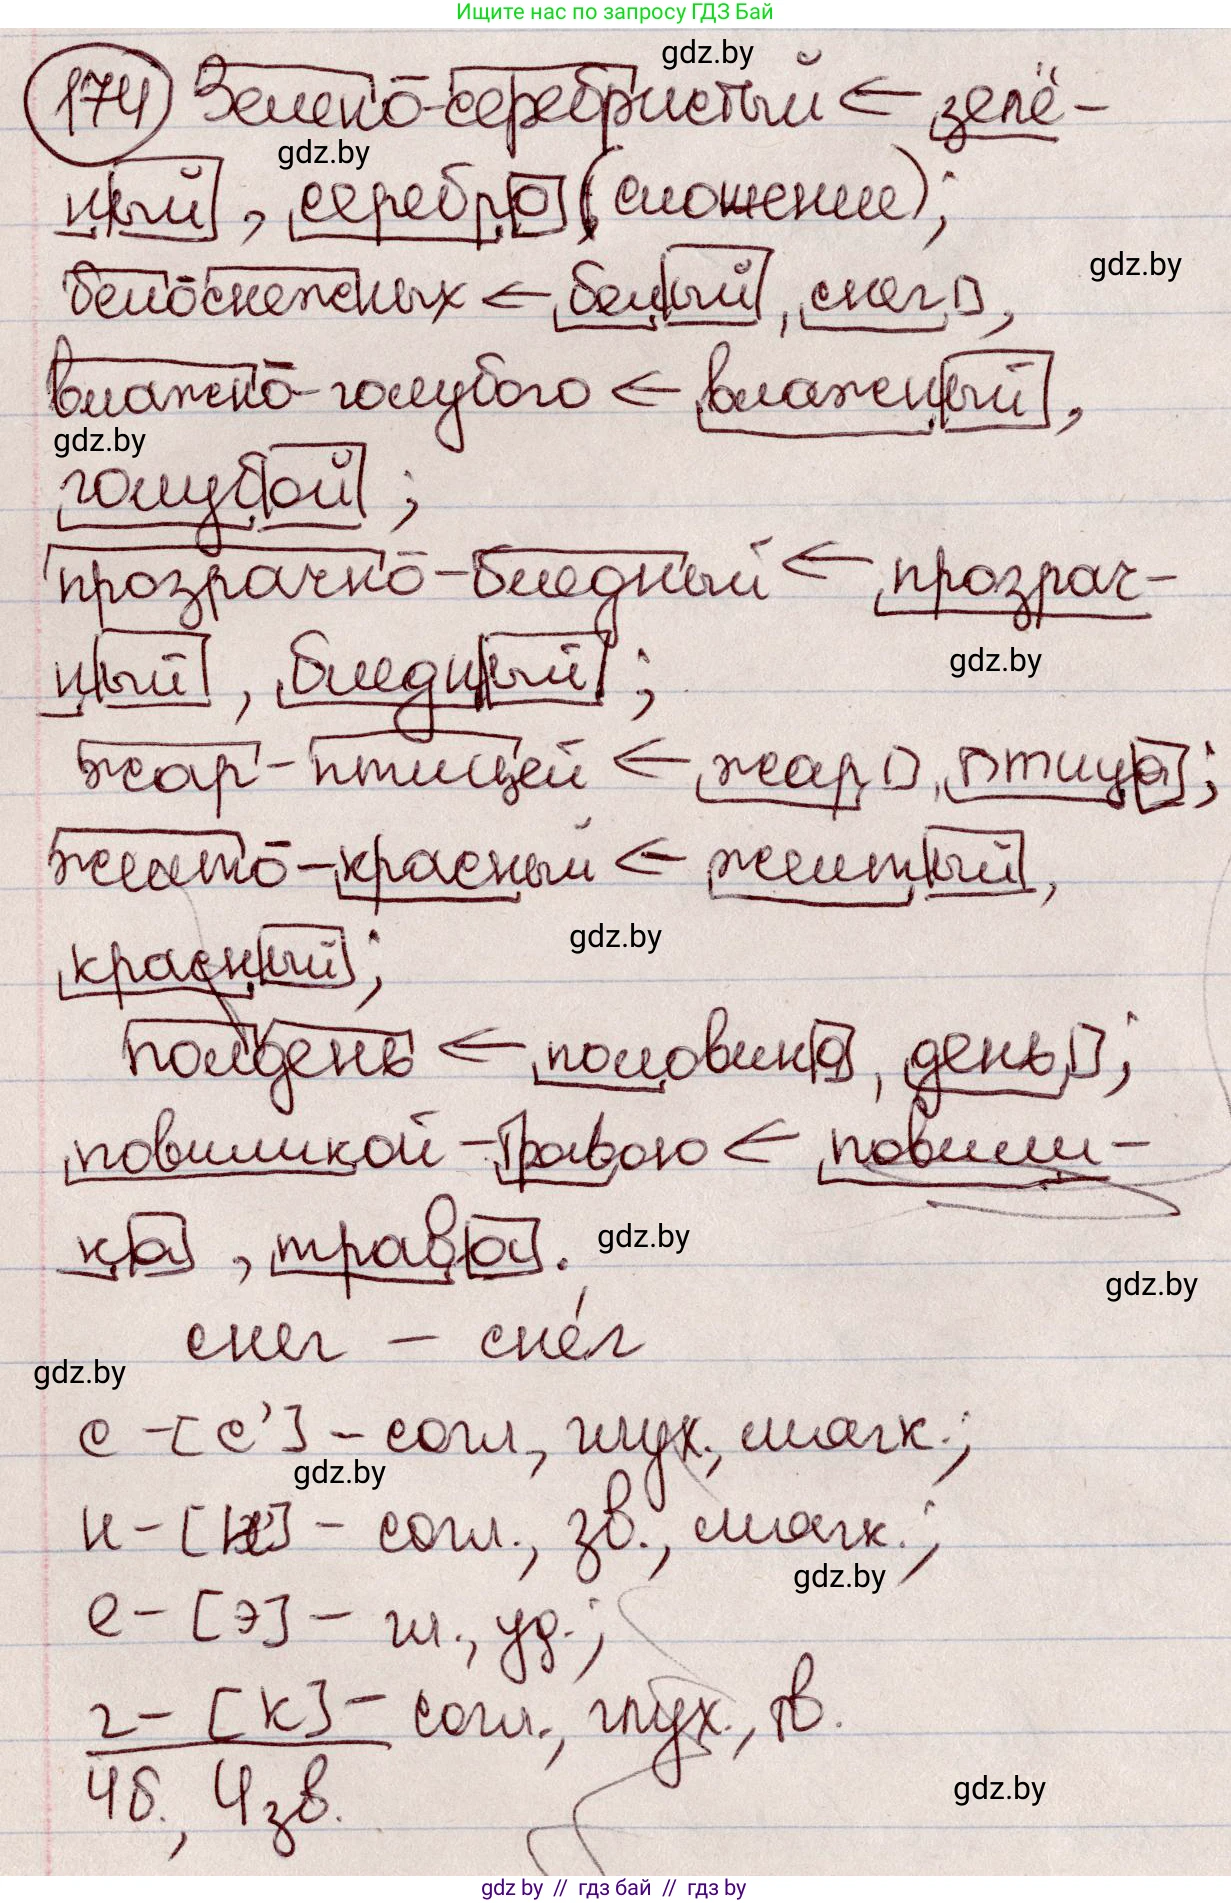 Ищите нас по запросу ГДЗ Бай
gdz.by
174 Зелено-серебристый ← зелё-
gdz.by
ный, серебро (сложение);
gdz.by
белоснежных ← белый, снег,
влажно-голубого ← влажный,
gdz.by
голубой;
прозрачно-бледный ← прозрач-
gdz.by
ный, бледный;
жар-птицей ← жар, птица;
желто-красный ← желтый,
gdz.by
красный;
полдень ← половина, день;
повиликой-травою ← повили-
ка, трава.
gdz.by
gdz.by
снег - сне́г
gdz.by
с - [с'] - согл., глух., мягк.;
gdz.by
н - [н'] - согл., зв., мягк.;
gdz.by
е - [э] - гл., уд.;
г - [к] - согл., глух., тв.
4б., 4зв.
gdz.by
gdz.by // гдз бай // гдз by